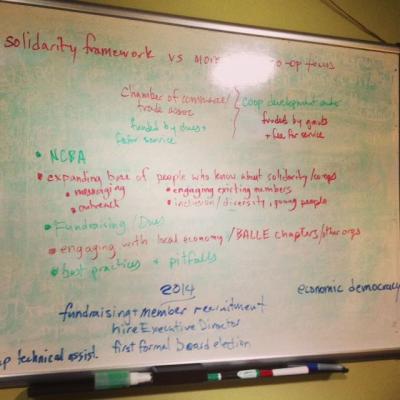 solidarity framework vs more co-op focus
Chamber of commerce/
trade assoc
funded by dues +
fee for service
coop development center
funded by gov's
+ fee for service
• NCBA
• expanding base of people who know about solidarity/co-ops
• messaging
• engaging existing members
• outreach
• inclusion/diversity, young people
• Fundraising/Dues
• engaging with local economy/BALLE chapters/other orgs
• best practices + pitfalls
2014
economic democracy
fundraising + member recruitment
hire Executive Director
technical assist.
first formal board election